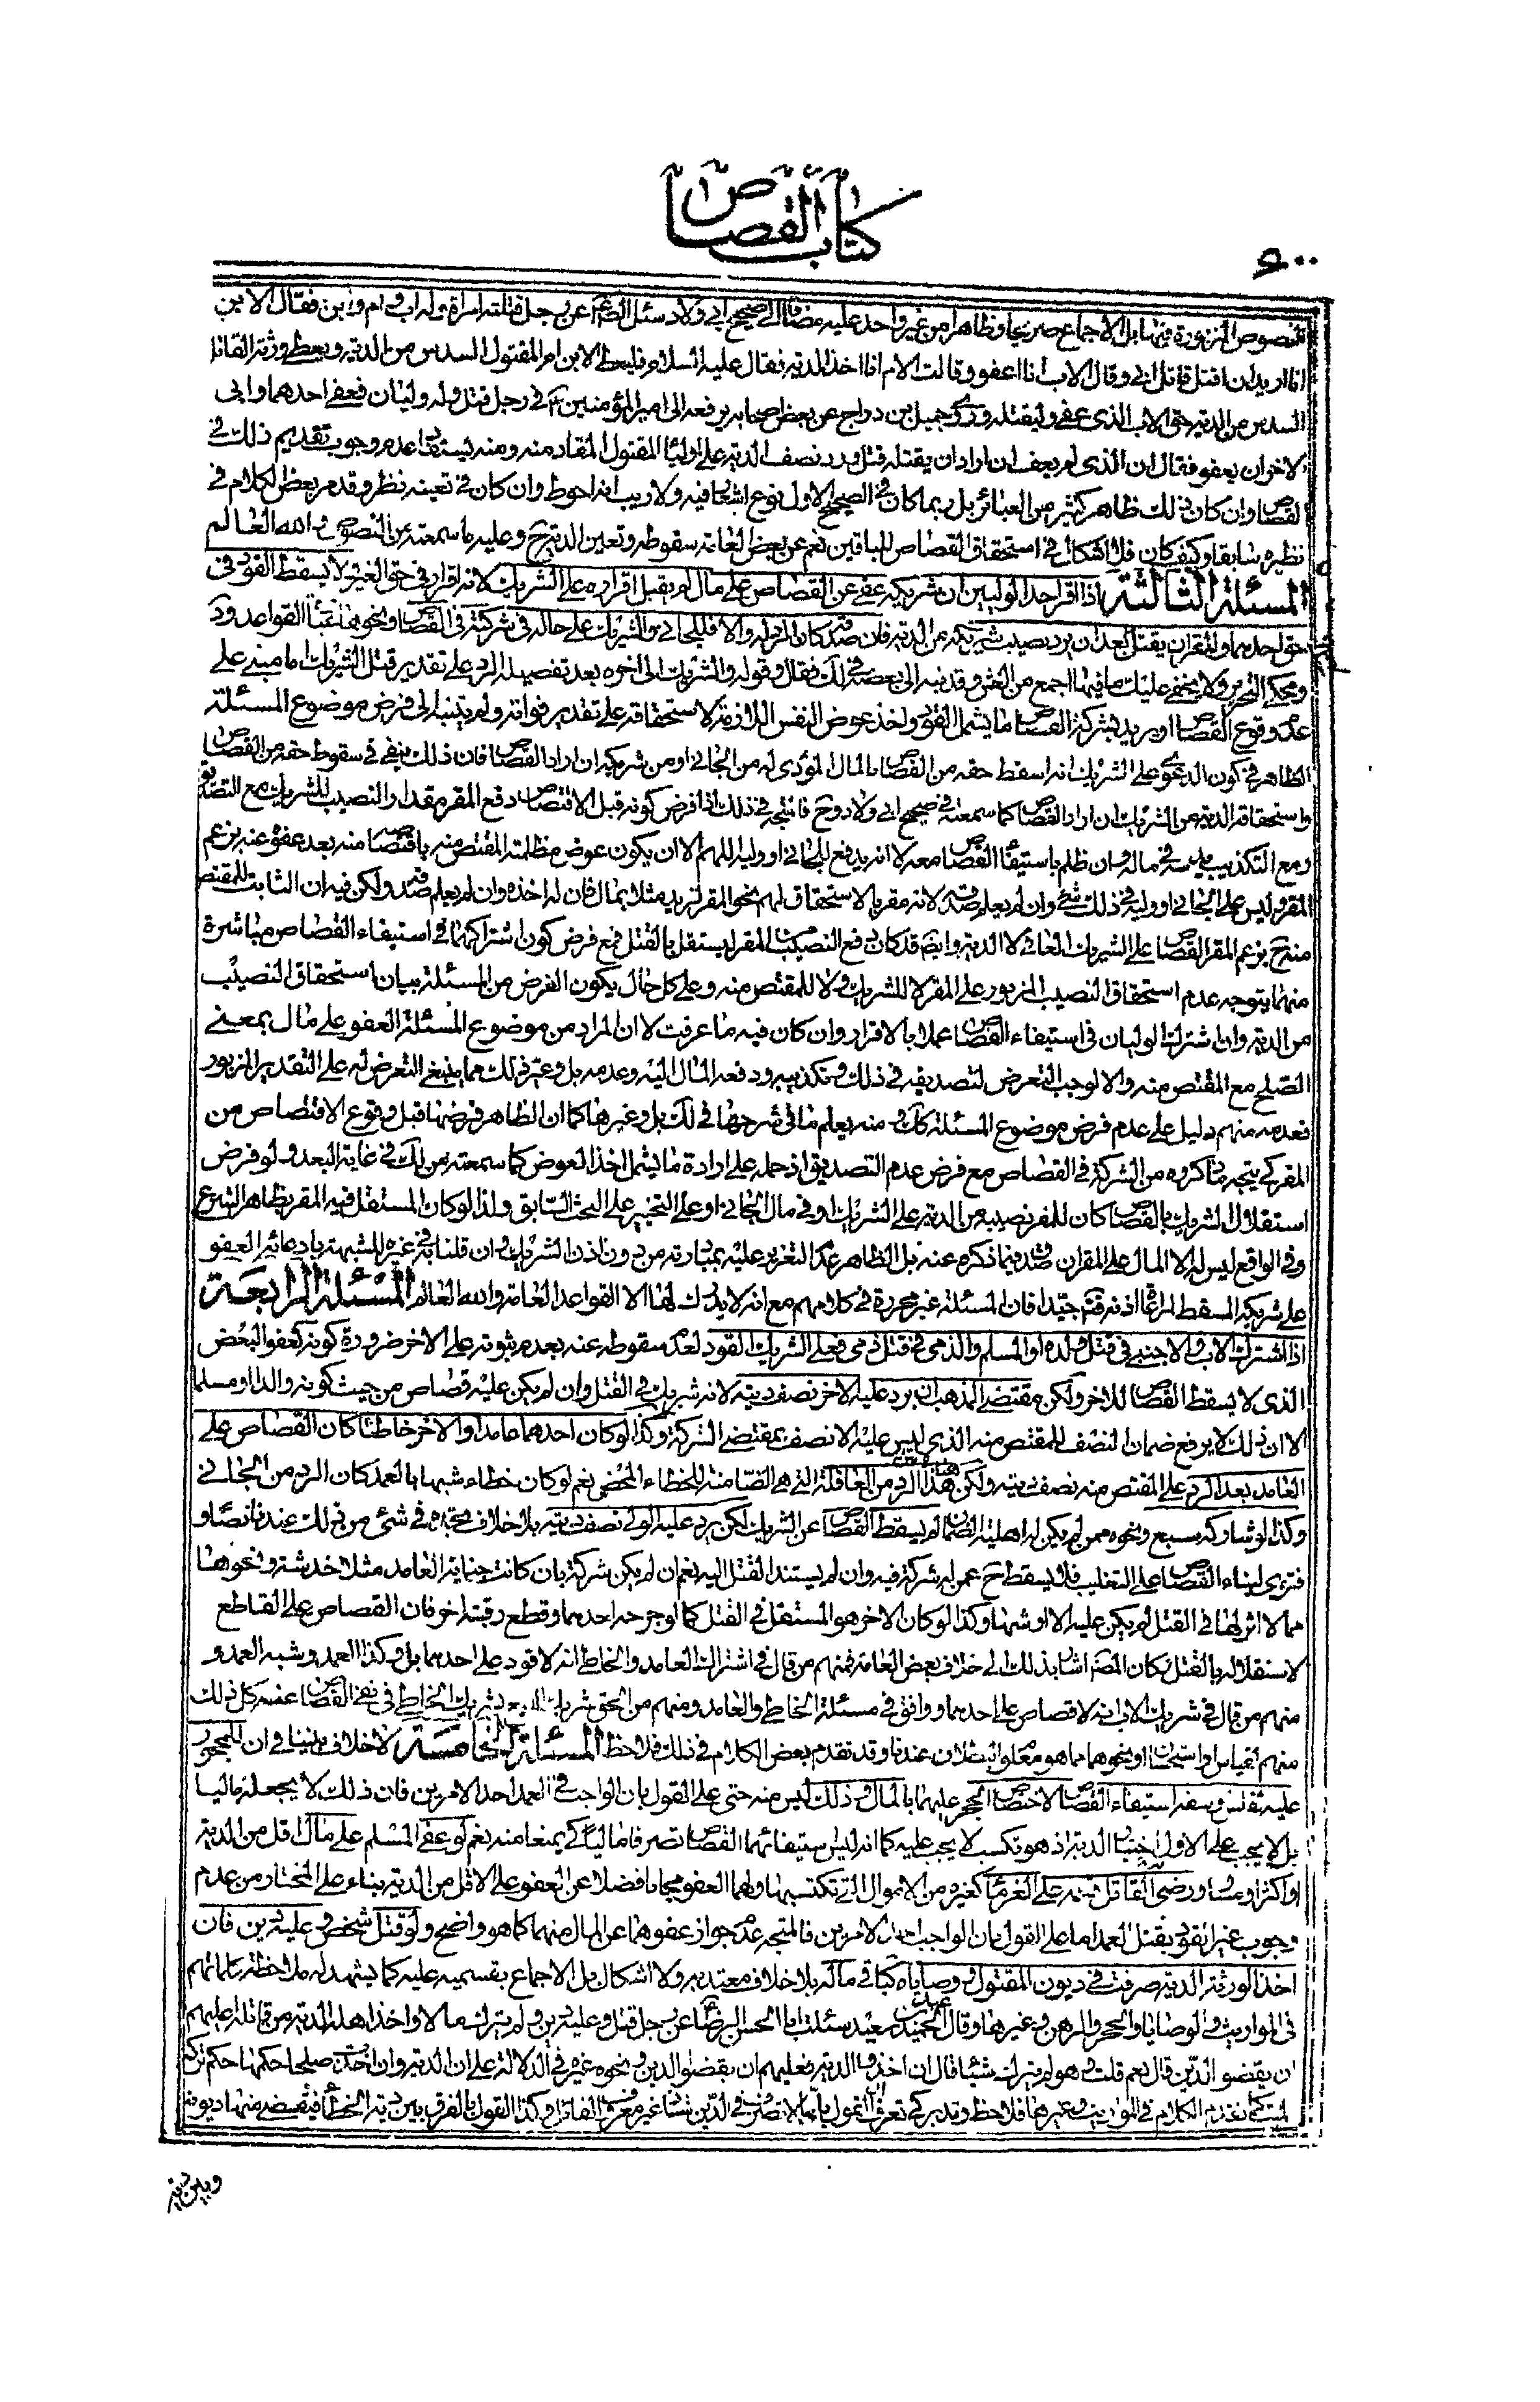 كتاب القصاص
للنصوص المزبورة منها بل الاجماع صريحا وظاهرا من غير واحد عليه مضافا الى صحيح ابي ولاد سئل الصادق عن رجل قتلته امراة وله اب وام وابن فقال الابن
انا اريد ان اقتل قاتل ابي وقال الاب انا اعفو وقالت الام انا اخذ الدية فقال عليه السلام فليعط الابن ام المقتول السدس من الدية ويعطى ورثة القاتل
السدس من الدية حق الاب الذى عفى وليقتله وروى جميل بن دراج عن بعض اصحابه يرفعه الى امير المؤمنين ع في رجل قتل وله وليان فعفى احدهما وابى
الاخر ان يعفو فقال ان الذى لم يعف ان اراد ان يقتله قتل ورد نصف الدية على اولياء المقتول المقاد منه ومنه يستفاد عدم وجوب تقديم ذلك في
القصاص وان كان ذلك ظاهر كثير من العبائر بل ربما كان في الصحيح الاول نوع اشعار فيه ولا ريب انه احوط وان كان في تعينه نظر وقد مر بعض الكلام في
نظيره سابقا وكيف كان فلا اشكال في استحقاق القصاص للباقين نعم عن بعض العامة سقوطه وتعين الدية ح وعليه ما سمعته من النصوص والله العالم
المسئلة الثالثة اذا اقر احد الوليين ان شريكه عفى عن القصاص على مال لم يقبل اقراره على الشريك لانه اقرار في حق الغير ولا يسقط القود في
حق احدهما وللمقر ان يقتل لكن بعد ان يرد نصيب شريكه من الدية فان صدقه كان الرد له والا فللجاني والشريك على حاله في شركة في القصاص ونحوهما
عدم وقوع القصاص او يريد بشركة القصاص ما يشمل القود واخذ عوض النفس اللازم لاستحقاقه على تقدير فواته ولم يتنبه الى فرض موضوع المسئلة
الظاهر في كون الدعوى على الشريك انه اسقط حقه من القصاص بالمال المؤدى له من الجاني او من شريكه ان اراد القصاص فان ذلك يكفي في سقوط حقه من القصاص
واستحقاقه الدية من الشريك ان اراد القصاص كما سمعته في صحيح ابي ولاد وح فالمتجه في ذلك اذا فرض كونه قبل الاقتصاص دفع المقر مقدار النصيب للشريك مع التصديق
المقر وليس على الجاني او وليه في ذلك شيء وان لم يعلم صدقه لانه مقر بالاستحقاق لهم نحو المقر لزيد مثلا بمال فان له اخذه وان لم يعلم صدقه ولكن فيه ان الثابت للمقتص
منه ح بزعم المقر القصاص على الشريك العافي لا الدية وايضا قد كان دفع النصيب للمقر ليستقل بالقتل فمع فرض كون اشتراكهما في استيفاء القصاص مباشرة
منهما يتوجه عدم استحقاق النصيب المزبور على المقر لا للشريك ولا للمقتص منه وعلى كل حال يكون الغرض من المسئلة بيان استحقاق النصيب
من الدية وان اشترك الوليان في استيفاء القصاص عملا بالاقرار وان كان فيه ما عرفت الا ان المراد من موضوع المسئلة العفو على مال بمعنى
الصلح مع المقتص منه والا لوجب التعرض لتصديقه في ذلك وتكذيبه ودفعه المال اليه وعدمه بل وغير ذلك مما ينبغي التعرض له على التقدير المزبور
فعدمه منهم دليل على عدم فرض موضوع المسئلة كك ومنه يعلم ما في شرحها في لك بل وغيرها كما ان الظاهر فرضها قبل وقوع الاقتصاص من
المقر كي يتجه ما ذكروه من الشركة في القصاص مع فرض عدم التصديق اذ حمله على ارادة ما يشمل اخذ العوض كما سمعته من لك في غاية البعد ولو فرض
استقلال الشريك بالقصاص كان للمقر نصيبه من الدية على الشريك او في مال الجاني او على التخيير على البحث السابق ولذا لو كان المستقل فيه المقر بظاهر الشرع
وفي الواقع ليس له الا المال على المقر ان صدق فيما ذكره عنه بل الظاهر عدم التعزير عليه بمبادرته من دون اذن الشريك وان قلنا به في غيره للشبهة بادعائه العفو
على شريكه المسقط لمراعاة اذنه فتم جيدا فان المسئلة غير محررة في كلامهم مع انه لا يدرك لها الا القواعد العامة والله العالم المسئلة الرابعة
اذا اشترك الاب والاجنبي في قتل ولده او المسلم والذمي في قتل ذمي فعلى الشريك القود لعدم سقوطه عنه بعدم ثبوته على الاخر ضرورة كونه كعفو البعض
الذى لا يسقط القصاص للاخر ولكن مقتضى المذهب ان يرد عليه الاخر نصف ديته لانه شريك في القتل وان لم يكن عليه قصاص من حيث كونه والدا او مسلما
الا ان ذلك لا يرفع ضمان النصف للمقتص منه الذي ليس عليه الا نصف بمقتضى الشركة وكذا لو كان احدهما عامدا والاخر خاطئا كان القصاص على
العامد بعد الرد على المقتص منه نصف ديته ولكن هنا هذا الرد من العاقلة التي هي الضامنة للخطاء المحض نعم لو كان خطاء شبيها بالعمد كان الرد من الجاني
وكذا لو شاركه سبع ونحوه ممن لم يكن له اهلية الضمان لم يسقط القصاص عن الشريك لكن يرد عليه الولي نصف ديته بلا خلاف محقق اجده في شئ من ذلك عندنا نصا و
فتوى لبناء القصاص على التغليب فلا يسقط ح عمن له شركة فيه وان لم يستند القتل اليه نعم ان لم يكن شركة بان كانت جناية العامد مثلا خدشة ونحوها
مما لا اثر لها في القتل لم يكن عليه الا ارشها وكذا لو كان الاخر هو المستقل في القتل كما لو جرحه احدهما وقطع رقبته اخر فان القصاص على القاطع
لاستقلاله بالقتل وكان المصنف اشار بذلك الى خلاف بعض العامة فمنهم من قال في اشتراك العامد والخاطئ انه لا قود على احدهما بل وكذا العمد وشبه العمد و
منهم من قال في شريك الاب انه لا قصاص على احدهما ووافق في مسئلة الخاطئ والعامد ومنهم من الحق شريك السبع بشريك الخاطئ في نفي القصاص عنه كل ذلك
منهم لقياس او استحسان او نحوهما مما هو معلوم البطلان عندنا وقد تقدم بعض الكلام في ذلك فلاحظ المسئلة الخامسة لا خلاف بيننا في ان للمحجور
عليه لفلس وسفه استيفاء القصاص لاختصاص الحجر عليهما بالمال وذلك ليس منه حتى على القول بان الواجب في العمد احد الامرين فان ذلك لا يجعله ماليا
بل لا يجب على الاول اختيار الدية اذ هو تكسب لا يجب عليه كما انه ليس استيفائهما القصاص تصرفا ماليا كي يمنعا منه نعم لو عفى المسلم على مال اقل من الدية
او اكثر او مساو ورضى القاتل قسمه على الغرماء كغيره من الاموال التي تكتسبها ولهما العفو مجانا فضلا عن العفو على الاقل من الدية بناء على المختار من عدم
وجوب غير القود بقتل العمد اما على القول بان الواجب احد الامرين فالمتجه عدم جواز عفوهما عن المال منهما كما هو واضح ولو قتل شخص وعليه دين فان
اخذ الورثة الدية صرفت في ديون المقتول ووصاياه كباقي ماله بلا خلاف معتد به ولا اشكال بل الاجماع بقسميه عليه كما يشهد له ملاحظة كلماتهم
في المواريث والوصايا والحجر والرهن وغيرها وقال عبد الحميد بن سعيد سئلت ابا الحسن الرضا عن رجل قتل وعليه دين ولم يترك مالا واخذ اهله الدية من قاتله اعليهم
ان يقضوا الدين قال نعم قلت وهو لم يترك شيئا قال ان اخذوا الدية فعليهم ان يقضوا الدين ونحوه غيره في الدلالة على ان الدية وان اخذت صلحا حكمها حكم تركة
الميت كما تقدم الكلام في المواريث وغيرها فلاحظ وتدبر كي تعرف ان القول بانها لا تصرف في الدين شاذ غير معروف القائل وكذا القول بالفرق بين دية الخطأ فيقضى منها ديونه
وبين دية